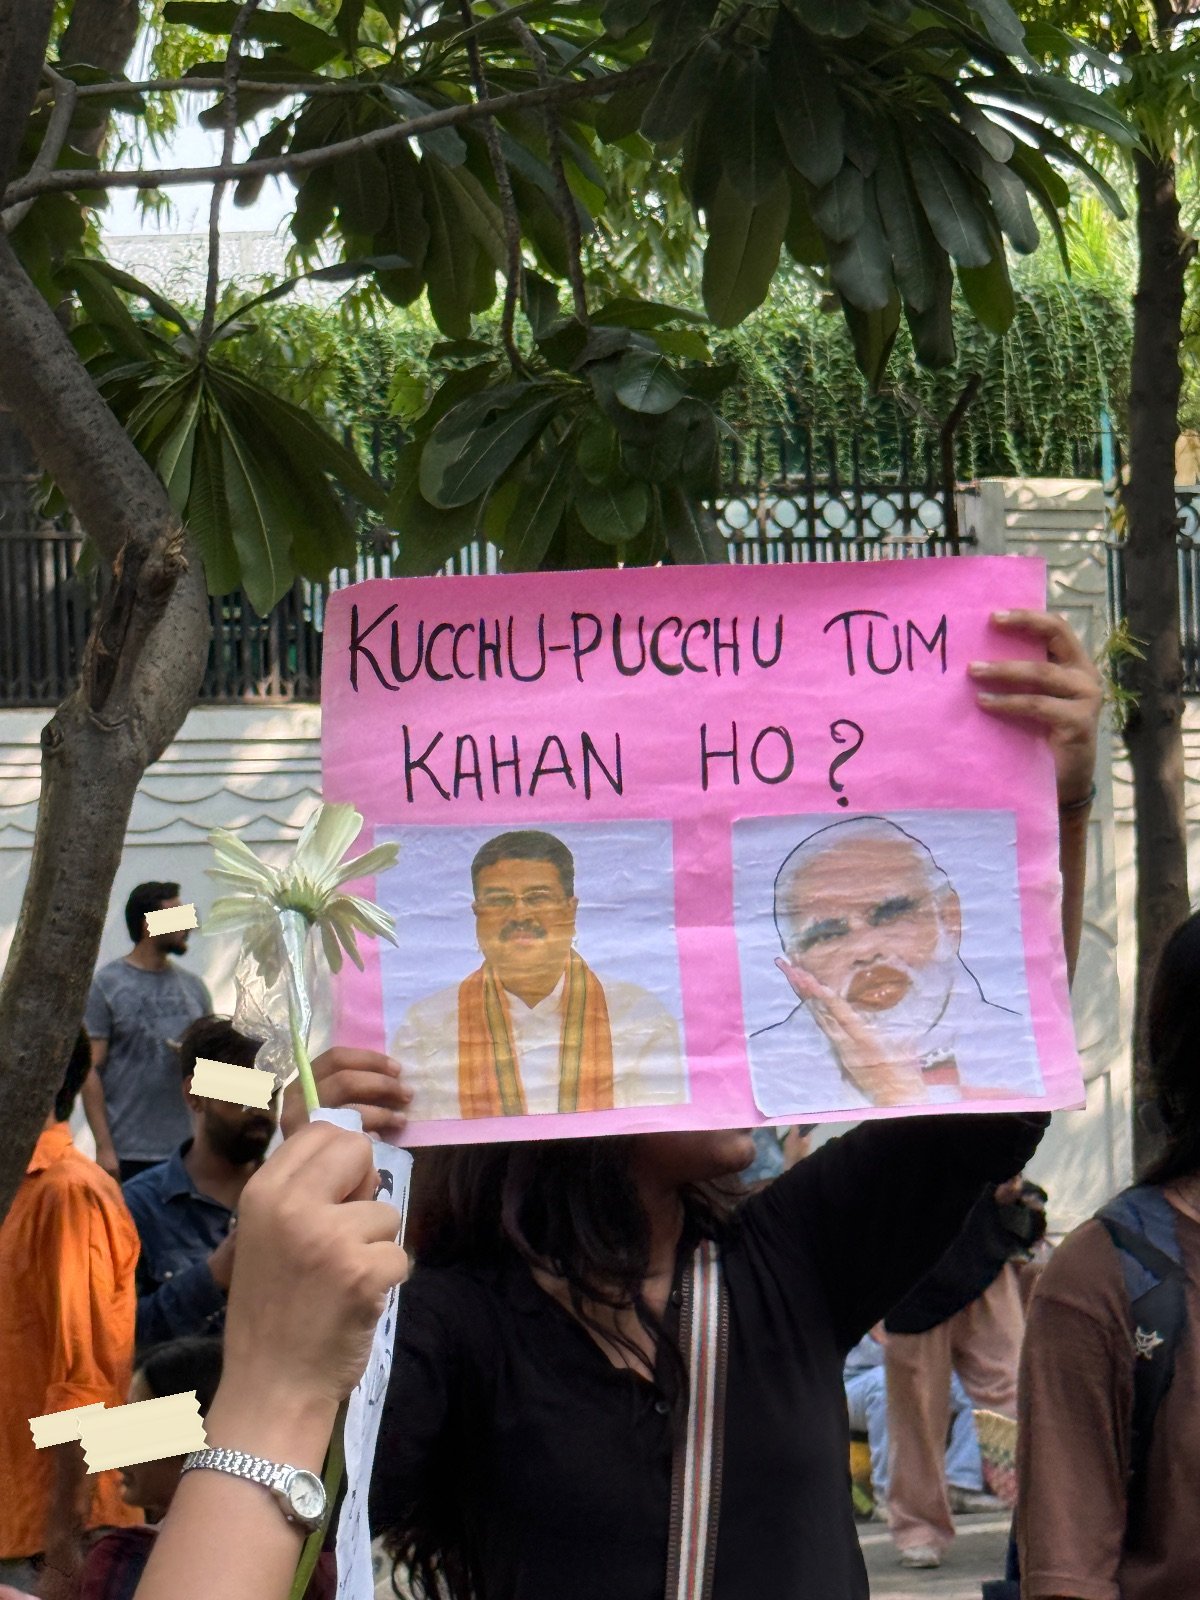 KUCCHU-PUCCHU TUM
KAHAN HO?